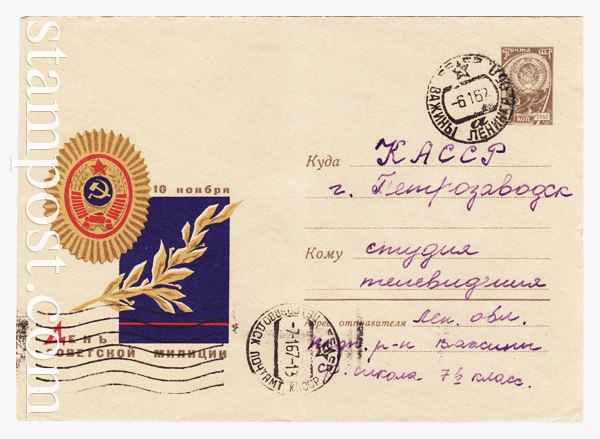 stampost.com
10 ноября
День
советской милиции
почта СССР
ВАЖИНЫ ЛЕНИНГ. ОБЛ.
-6 1 67
а
Куда КАССР
г. Петрозаводск
Кому студия
телевидения
Адрес отправителя Лен. обл.
р-н Важины
ср. школа 7 класс.
ПЕТРОЗАВОДСК ПОЧТАМТ КАССР
-7 1 67-13